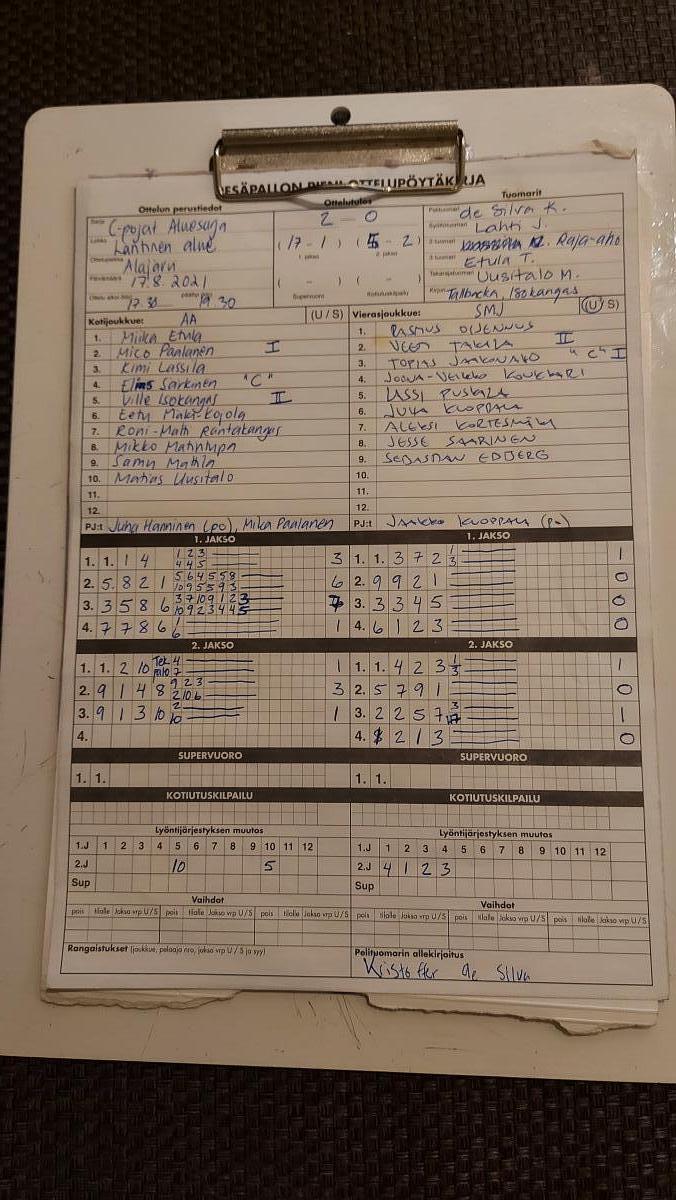 PESÄPALLON PIENI OTTELUPÖYTÄKIRJA
Ottelun perustiedot
Ottelutulos
Tuomarit
Sarja C-pojat Aluesarja
Lohko Läntinen alue
Ottelupaikka Alajärvi
Päivämäärä 17.8.2021
Ottelu alkoi (klo) 17.30 päättyi (klo) 19.30
2 - 0
(17 - 1) (5 - 2)
1. jakso 2. jakso
( - ) ( - )
Supervuoro Kotiutuskilpailu
Pelituomari de Silva K.
Syöttötuomari Lahti J.
2-tuomari Raja-aho
3-tuomari Etula T.
Takarajatuomari Uusitalo M.
Kirjuri Tallbacka, Isokangas
Kotijoukkue: AA (U / S)
1. Miika Etula
2. Mico Paalanen I
3. Kimi Lassila
4. Elias Sarkinen "C"
5. Ville Isokangas II
6. Eetu Mäki-Kojola
7. Roni-Matti Rantakangas
8. Mikko Matintupa
9. Samu Mattila
10. Matias Uusitalo
11.
12.
PJ:t Juha Hänninen (po), Mika Paalanen
Vierasjoukkue: SMJ (U / S)
1. RASMUS OIJENNUS
2. VEETI TAKALA II
3. TOPIAS JAAKONAHO "C" I
4. JOONA-VEIKKO KOUKKARI
5. LASSI PUSKALA
6. JUHA KUOPPALA
7. ALEKSI KORTESMÄKI
8. JESSE SAARINEN
9. SEBASTIAN EDBERG
10.
11.
12.
PJ:t JAAKKO KUOPPALA (po)
1. JAKSO
1. 1. 1 4 1 2 3 3
4 4 5
2. 5 8 2 1 5 6 4 5 5 8 6
10 9 5 5 9 3
3. 3 5 8 6 3 7 10 9 1 2 3 7
10 9 2 3 4 4 5
4. 7 7 8 6 1 1
6
1. JAKSO
1. 1. 3 7 2 1 1
3
2. 9 9 2 1 0
3. 3 3 4 5 0
4. 6 1 2 3 0
2. JAKSO
1. 1. 2 10 Tek 4 1
palo 7
2. 9 1 4 8 9 2 3 3
2 10 6
3. 9 1 3 10 2 1
10
4.
2. JAKSO
1. 1. 4 2 3 1 1
3
2. 5 7 9 1 0
3. 2 2 5 7 3 1
4. 2 1 3 0
SUPERVUORO
1. 1.
SUPERVUORO
1. 1.
KOTIUTUSKILPAILU
KOTIUTUSKILPAILU
Lyöntijärjestyksen muutos
1.J 1 2 3 4 5 6 7 8 9 10 11 12
2.J 10 5
Sup
Lyöntijärjestyksen muutos
1.J 1 2 3 4 5 6 7 8 9 10 11 12
2.J 4 1 2 3
Sup
Vaihdot
pois tilalle Jakso vrp U/S pois tilalle Jakso vrp U/S pois tilalle Jakso vrp U/S
Vaihdot
pois tilalle Jakso vrp U/S pois tilalle Jakso vrp U/S pois tilalle Jakso vrp U/S
Rangaistukset (joukkue, pelaaja nro, jakso vrp U / S ja syy)
Pelituomarin allekirjoitus
Kristoffer de Silva